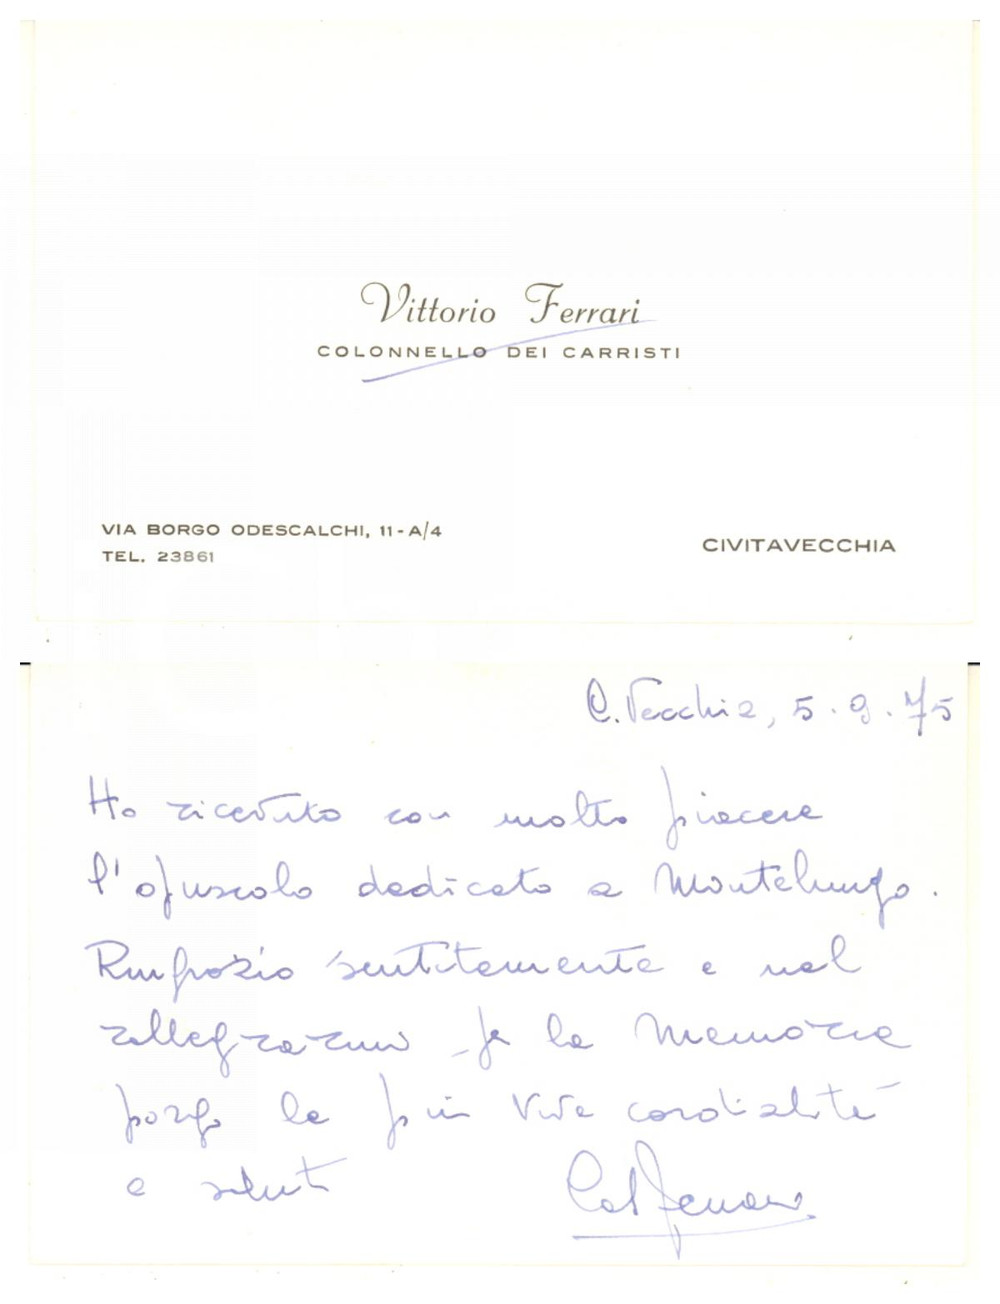 Vittorio Ferrari
COLONNELLO DEI CARRISTI
VIA BORGO ODESCALCHI, 11-A/4
TEL. 23861
CIVITAVECCHIA
C.Vecchia, 5.9.75
Ho ricevuto con molto piacere
l'opuscolo dedicato a Montelungo.
Ringrazio sentitamente e nel
rallegrarmi per la Memoria
porgo le più vive cordialità
e saluti Col Ferrari